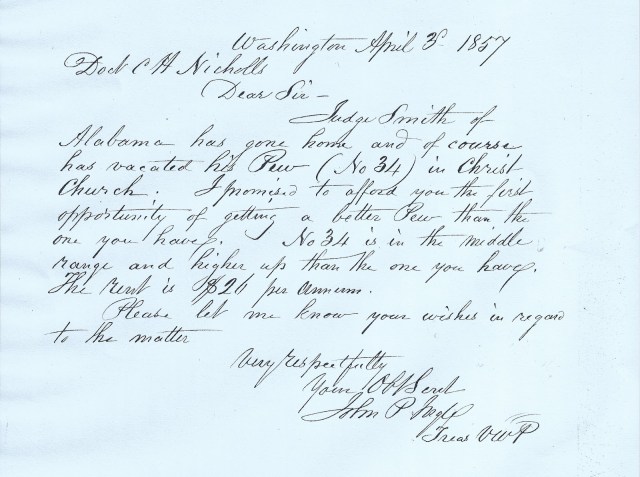 Washington April 3d 1857
Doct C H Nicholls
Dear Sir -
Judge Smith of
Alabama has gone home and of course
has vacated his Pew (No 34) in Christ
Church. I promised to afford you the first
opportunity of getting a better Pew than the
one you have. No 34 is in the middle
range and higher up than the one you have.
The rent is $20 per annum.
Please let me know your wishes in regard
to the matter
Very respectfully
Your Obt Servt
John P Ingle
Treas